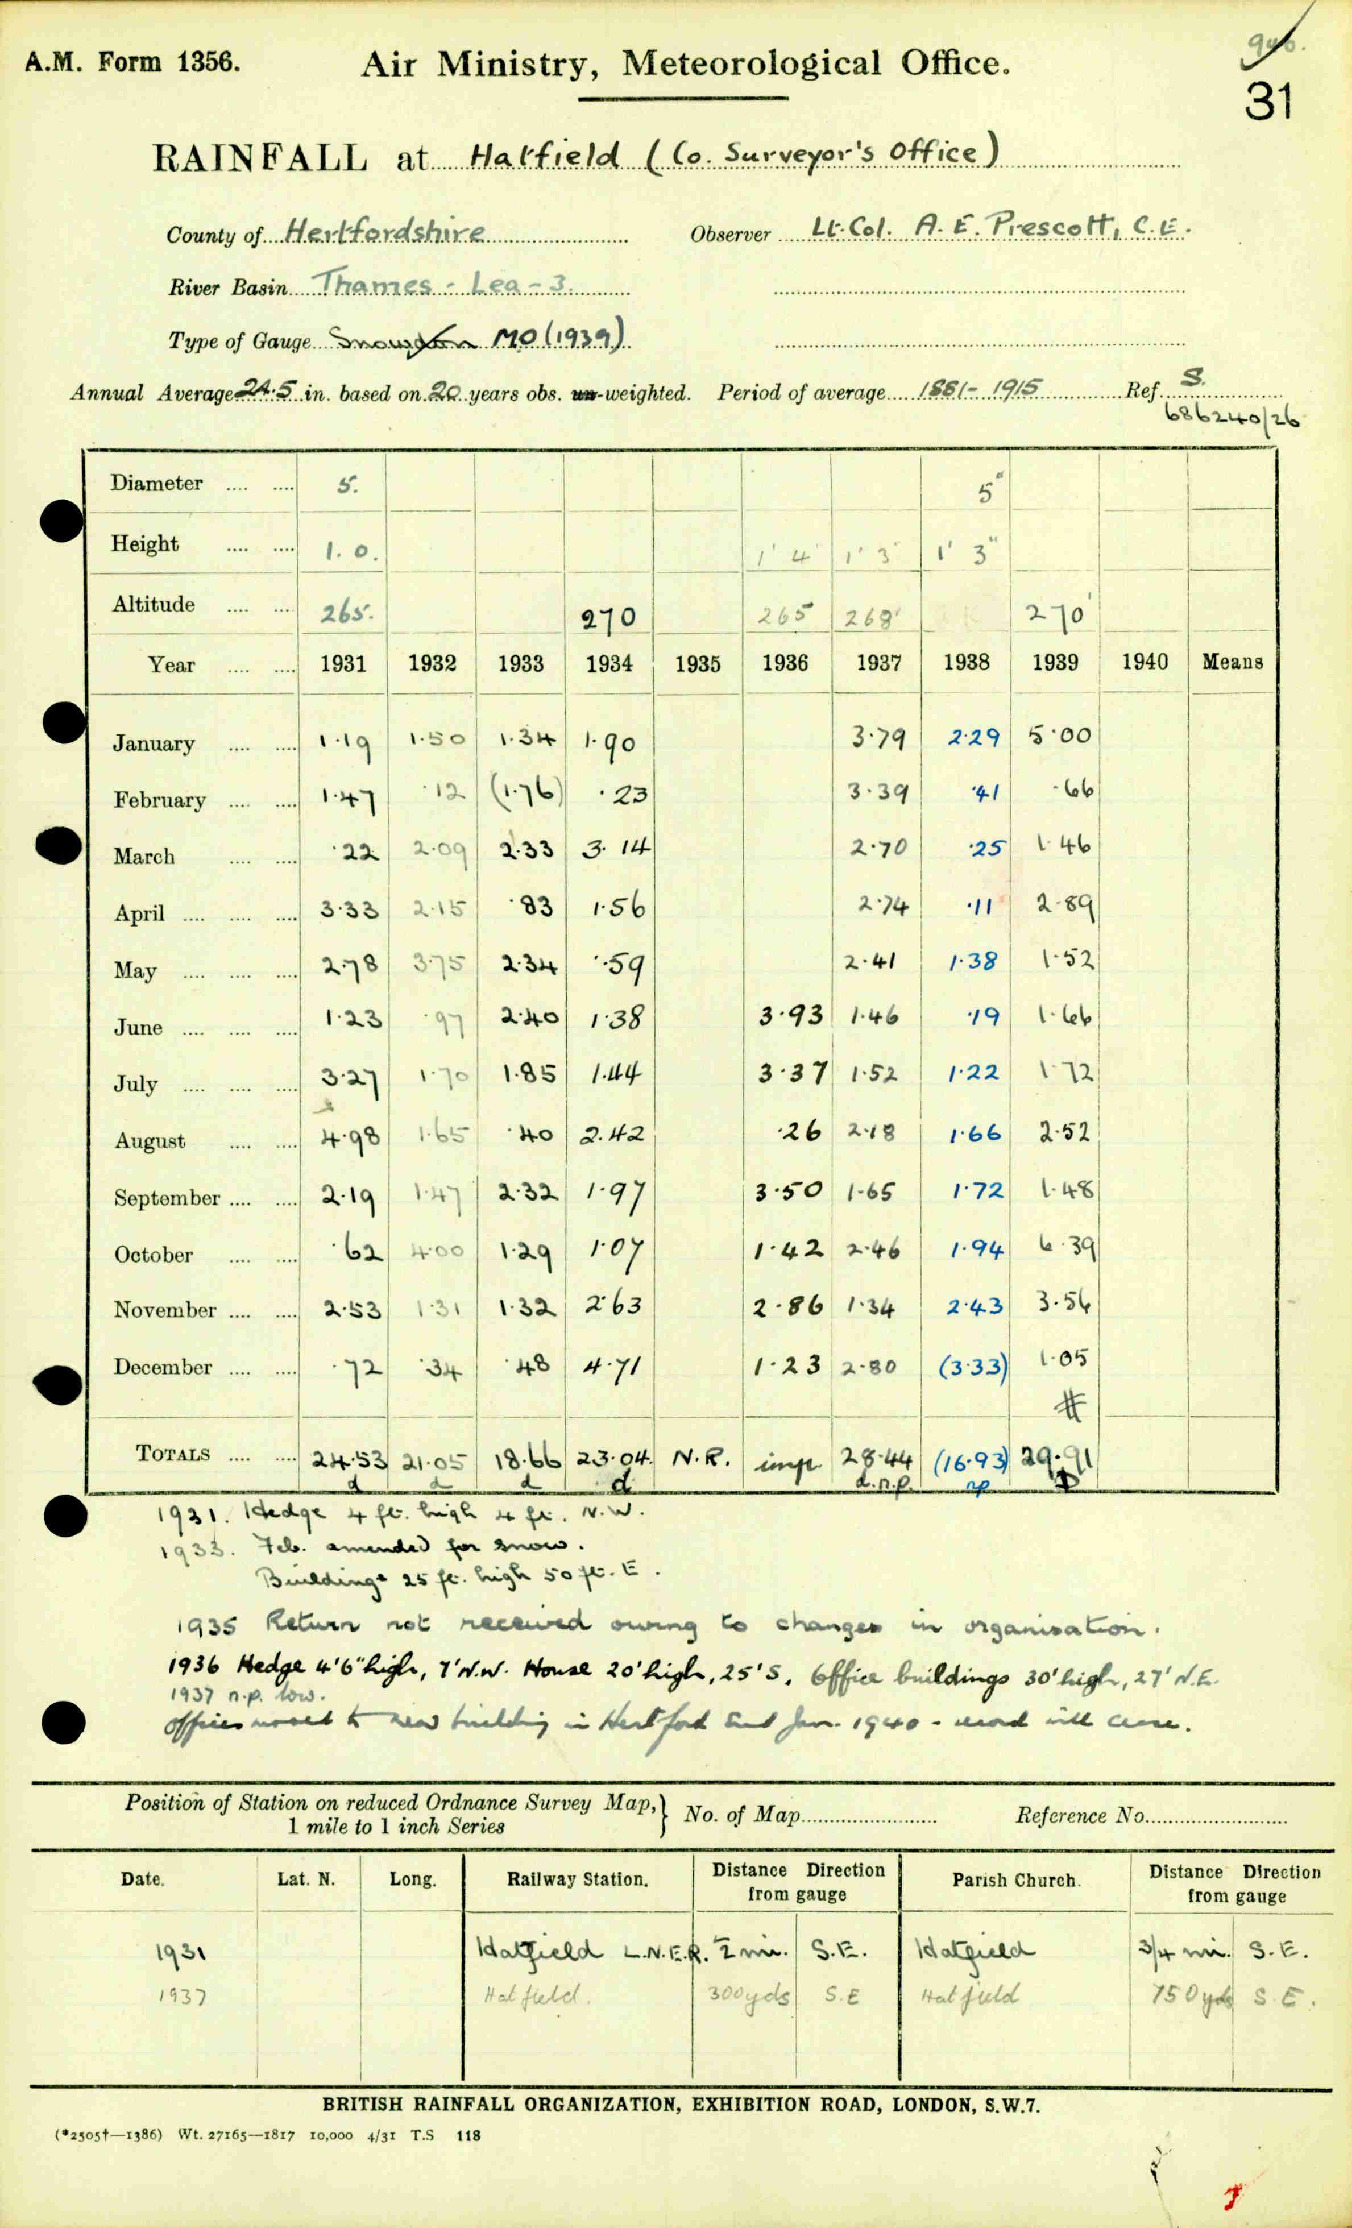 A.M. Form 1356. Air Ministry, Meteorological Office.
31
RAINFALL at Hatfield (Co. Surveyor's Office)
County of Hertfordshire Observer Lt. Col. A. E. Prescott, C.E.
River Basin Thames - Lea - 3
Type of Gauge Snowdon MO (1939)
Annual Average 24.5 in. based on 20 years obs. un-weighted. Period of average 1881-1915 Ref. S.
686240/26
Diameter .... .... 5. 5"
Height .... .... 1. 0. 1' 4" 1' 3" 1' 3"
Altitude .... .... 265. 270 265 268' 270'
Year .... .... 1931 1932 1933 1934 1935 1936 1937 1938 1939 1940 Means
January .... .... 1.19 1.50 1.34 1.90 3.79 2.29 5.00
February .... .... 1.47 .12 (1.76) .23 3.39 .41 .66
March .... .... .22 2.09 2.33 3.14 2.70 .25 1.46
April .... .... .... 3.33 2.15 .83 1.56 2.74 .11 2.89
May .... .... .... 2.78 3.75 2.34 .59 2.41 1.38 1.52
June .... .... .... 1.23 .97 2.40 1.38 3.93 1.46 .19 1.66
July .... .... .... 3.27 1.70 1.85 1.44 3.37 1.52 1.22 1.72
August .... .... 4.98 1.65 .40 2.42 .26 2.18 1.66 2.52
September .... .... 2.19 1.47 2.32 1.97 3.50 1.65 1.72 1.48
October .... .... .62 4.00 1.29 1.07 1.42 2.46 1.94 6.39
November .... .... 2.53 1.31 1.32 2.63 2.86 1.34 2.43 3.56
December .... .... .72 .34 .48 4.71 1.23 2.80 (3.33) 1.05
#
TOTALS .... .... 24.53 21.05 18.66 23.04 N.R. imp. 28.44 (16.93) 29.91
d d d d d.n.p. np D
1931. Hedge 4 ft. high 4 ft. N.W.
1933. Feb. amended for snow.
Buildings 25 ft. high 50 ft. E.
1935 Return not received owing to changes in organisation.
1936 Hedge 4'6" high, 7' N.W. House 20' high, 25' S. Office buildings 30' high, 27' N.E.
1937 n.p. low.
Offices moved to new building in Hertford end Jan. 1940 - record will cease.
Position of Station on reduced Ordnance Survey Map, } No. of Map Reference No.
1 mile to 1 inch Series
Date. Lat. N. Long. Railway Station. Distance Direction from gauge Parish Church. Distance Direction from gauge
1931 Hatfield L.N.E.R. ½ mi. S.E. Hatfield 3/4 mi. S.E.
1937 Hatfield. 300 yds S.E Hatfield 750 yds S.E.
BRITISH RAINFALL ORGANIZATION, EXHIBITION ROAD, LONDON, S.W.7.
(*2505†—1386) Wt. 27165—1817 10,000 4/31 T.S 118